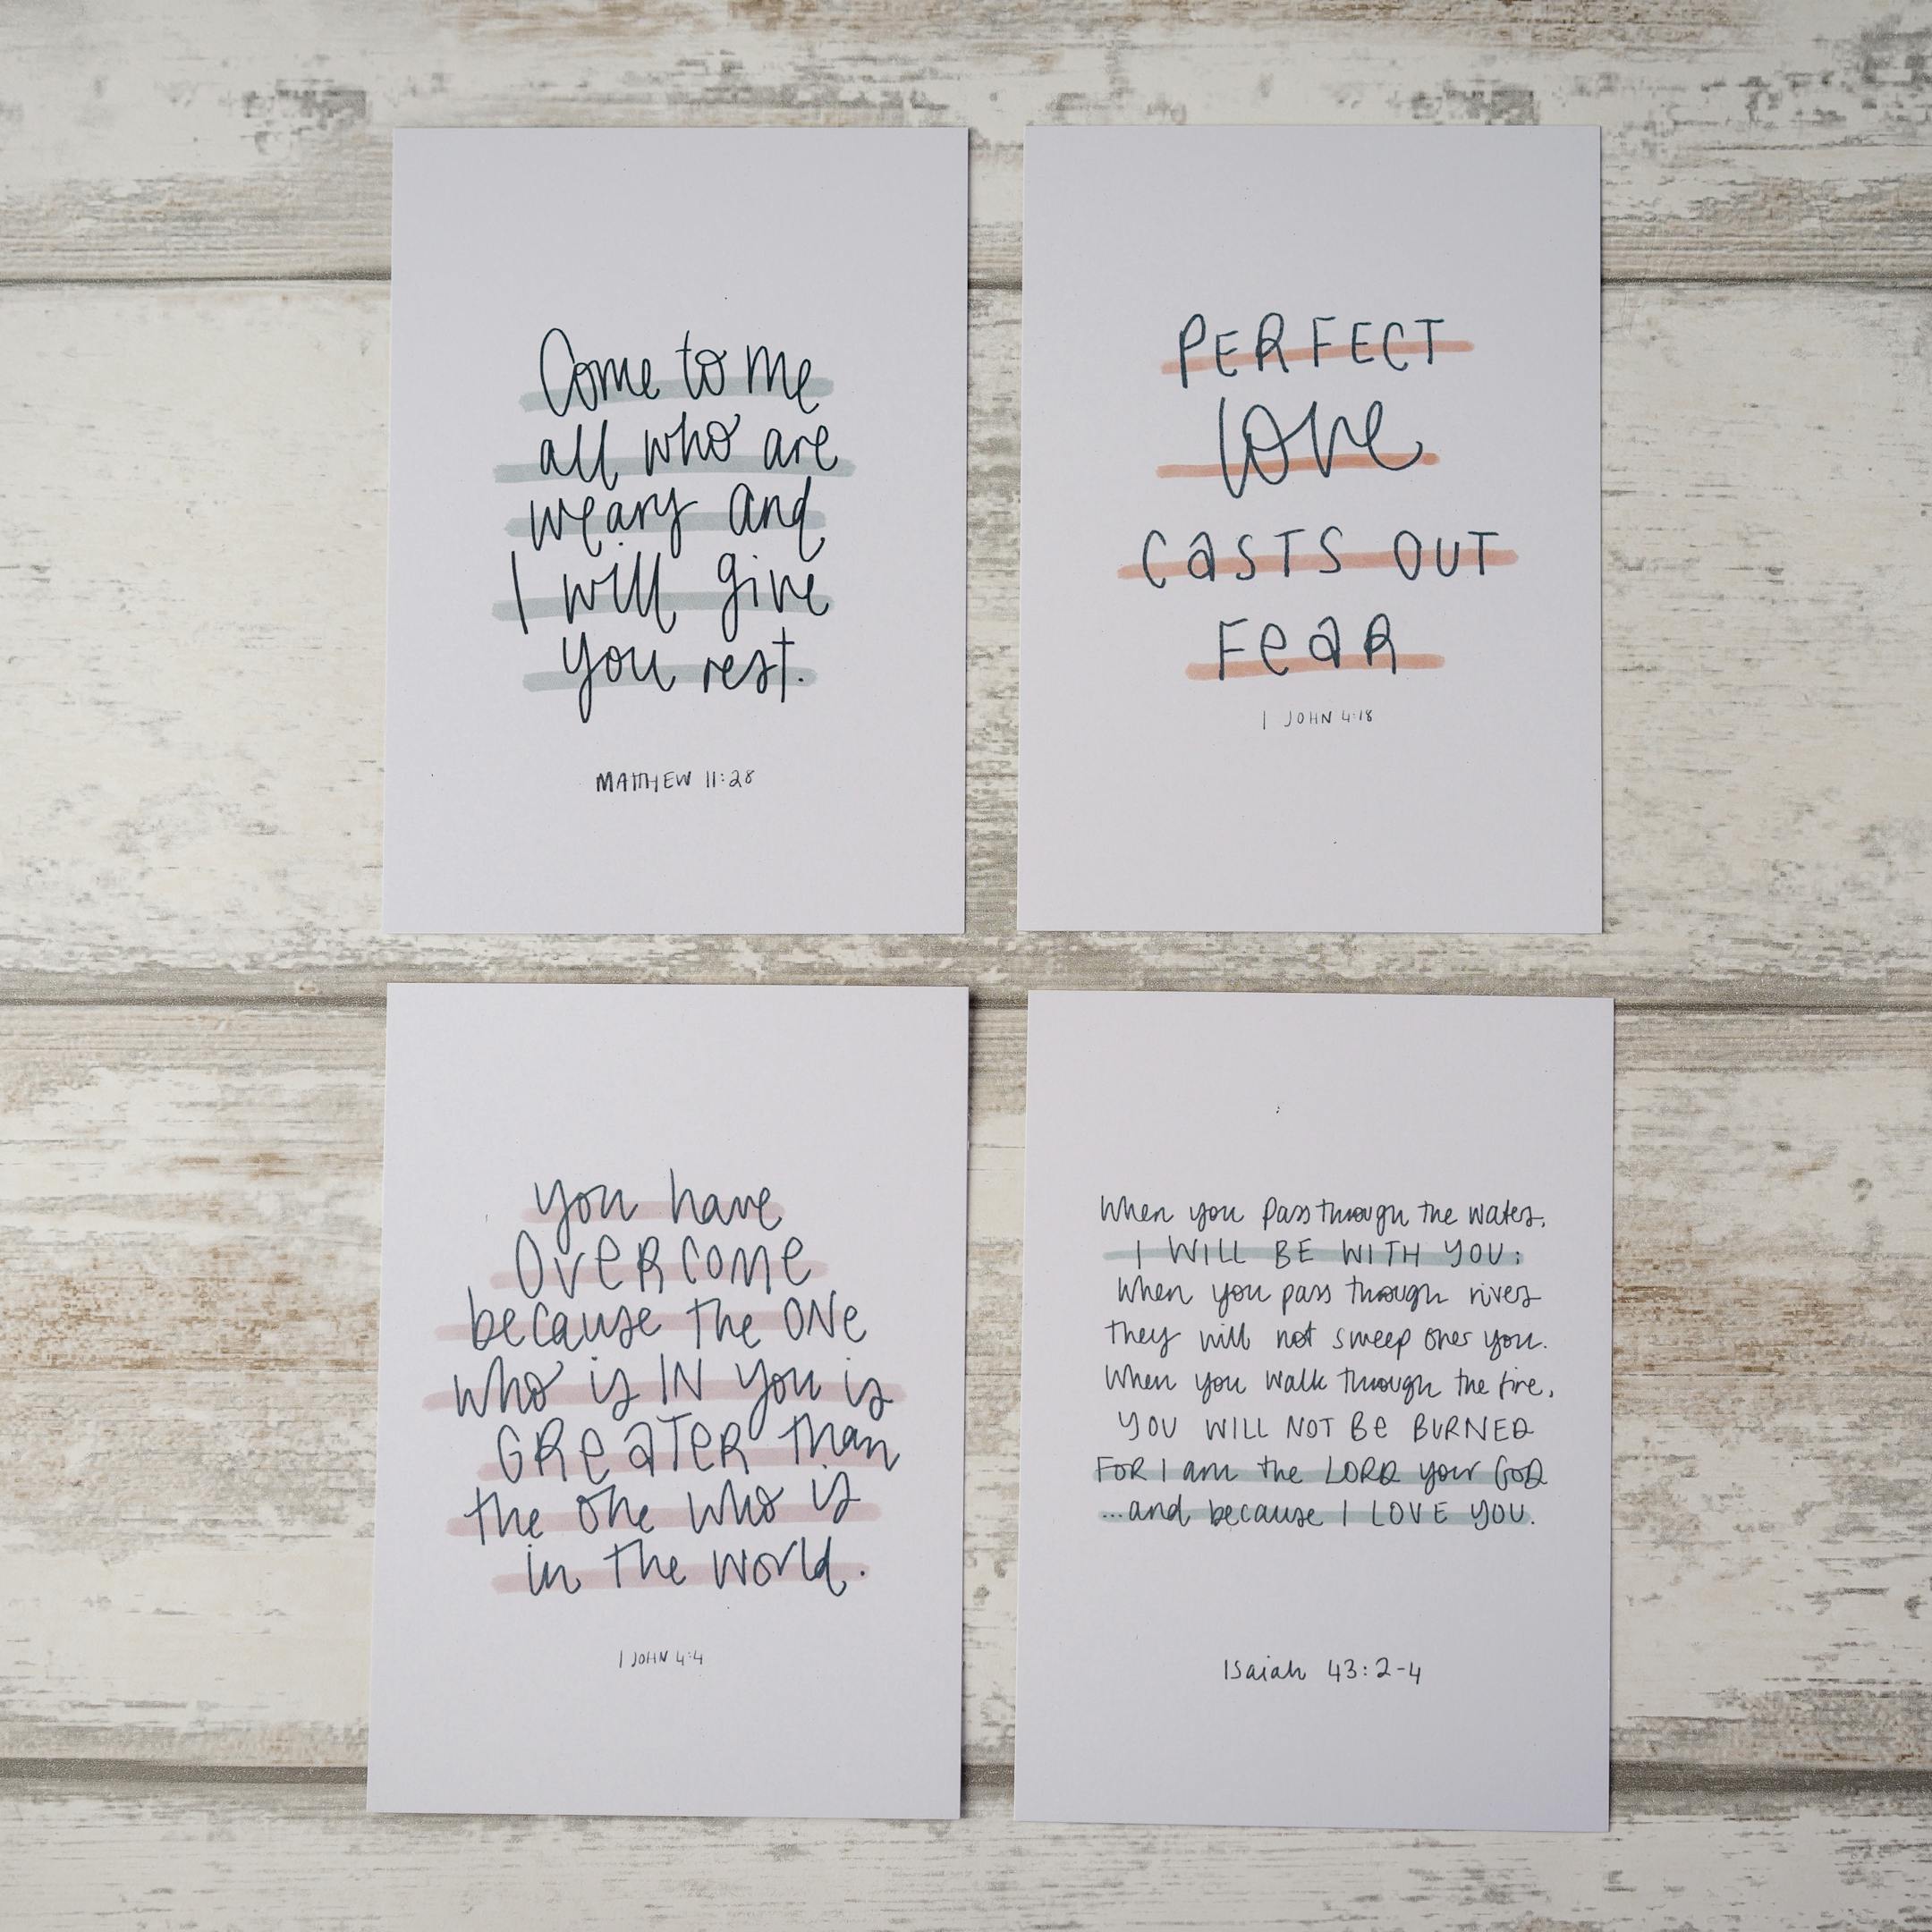 Come to me
all who are
weary and
I will give
you rest.
MATTHEW 11:28
PERFECT
love
CASTS OUT
FeaR
1 JOHN 4:18
you have
OveRcome
because the ONe
who is IN you is
GReaTeR than
the one who is
in the world.
1 JOHN 4:4
When you pass through the waters,
I WILL BE WITH YOU;
When you pass through rivers
they will not sweep over you.
When you walk through the fire,
YOU WILL NOT Be BURNED
FOR I am the LORD your GOD
...and because I LOVE YOU.
Isaiah 43:2-4